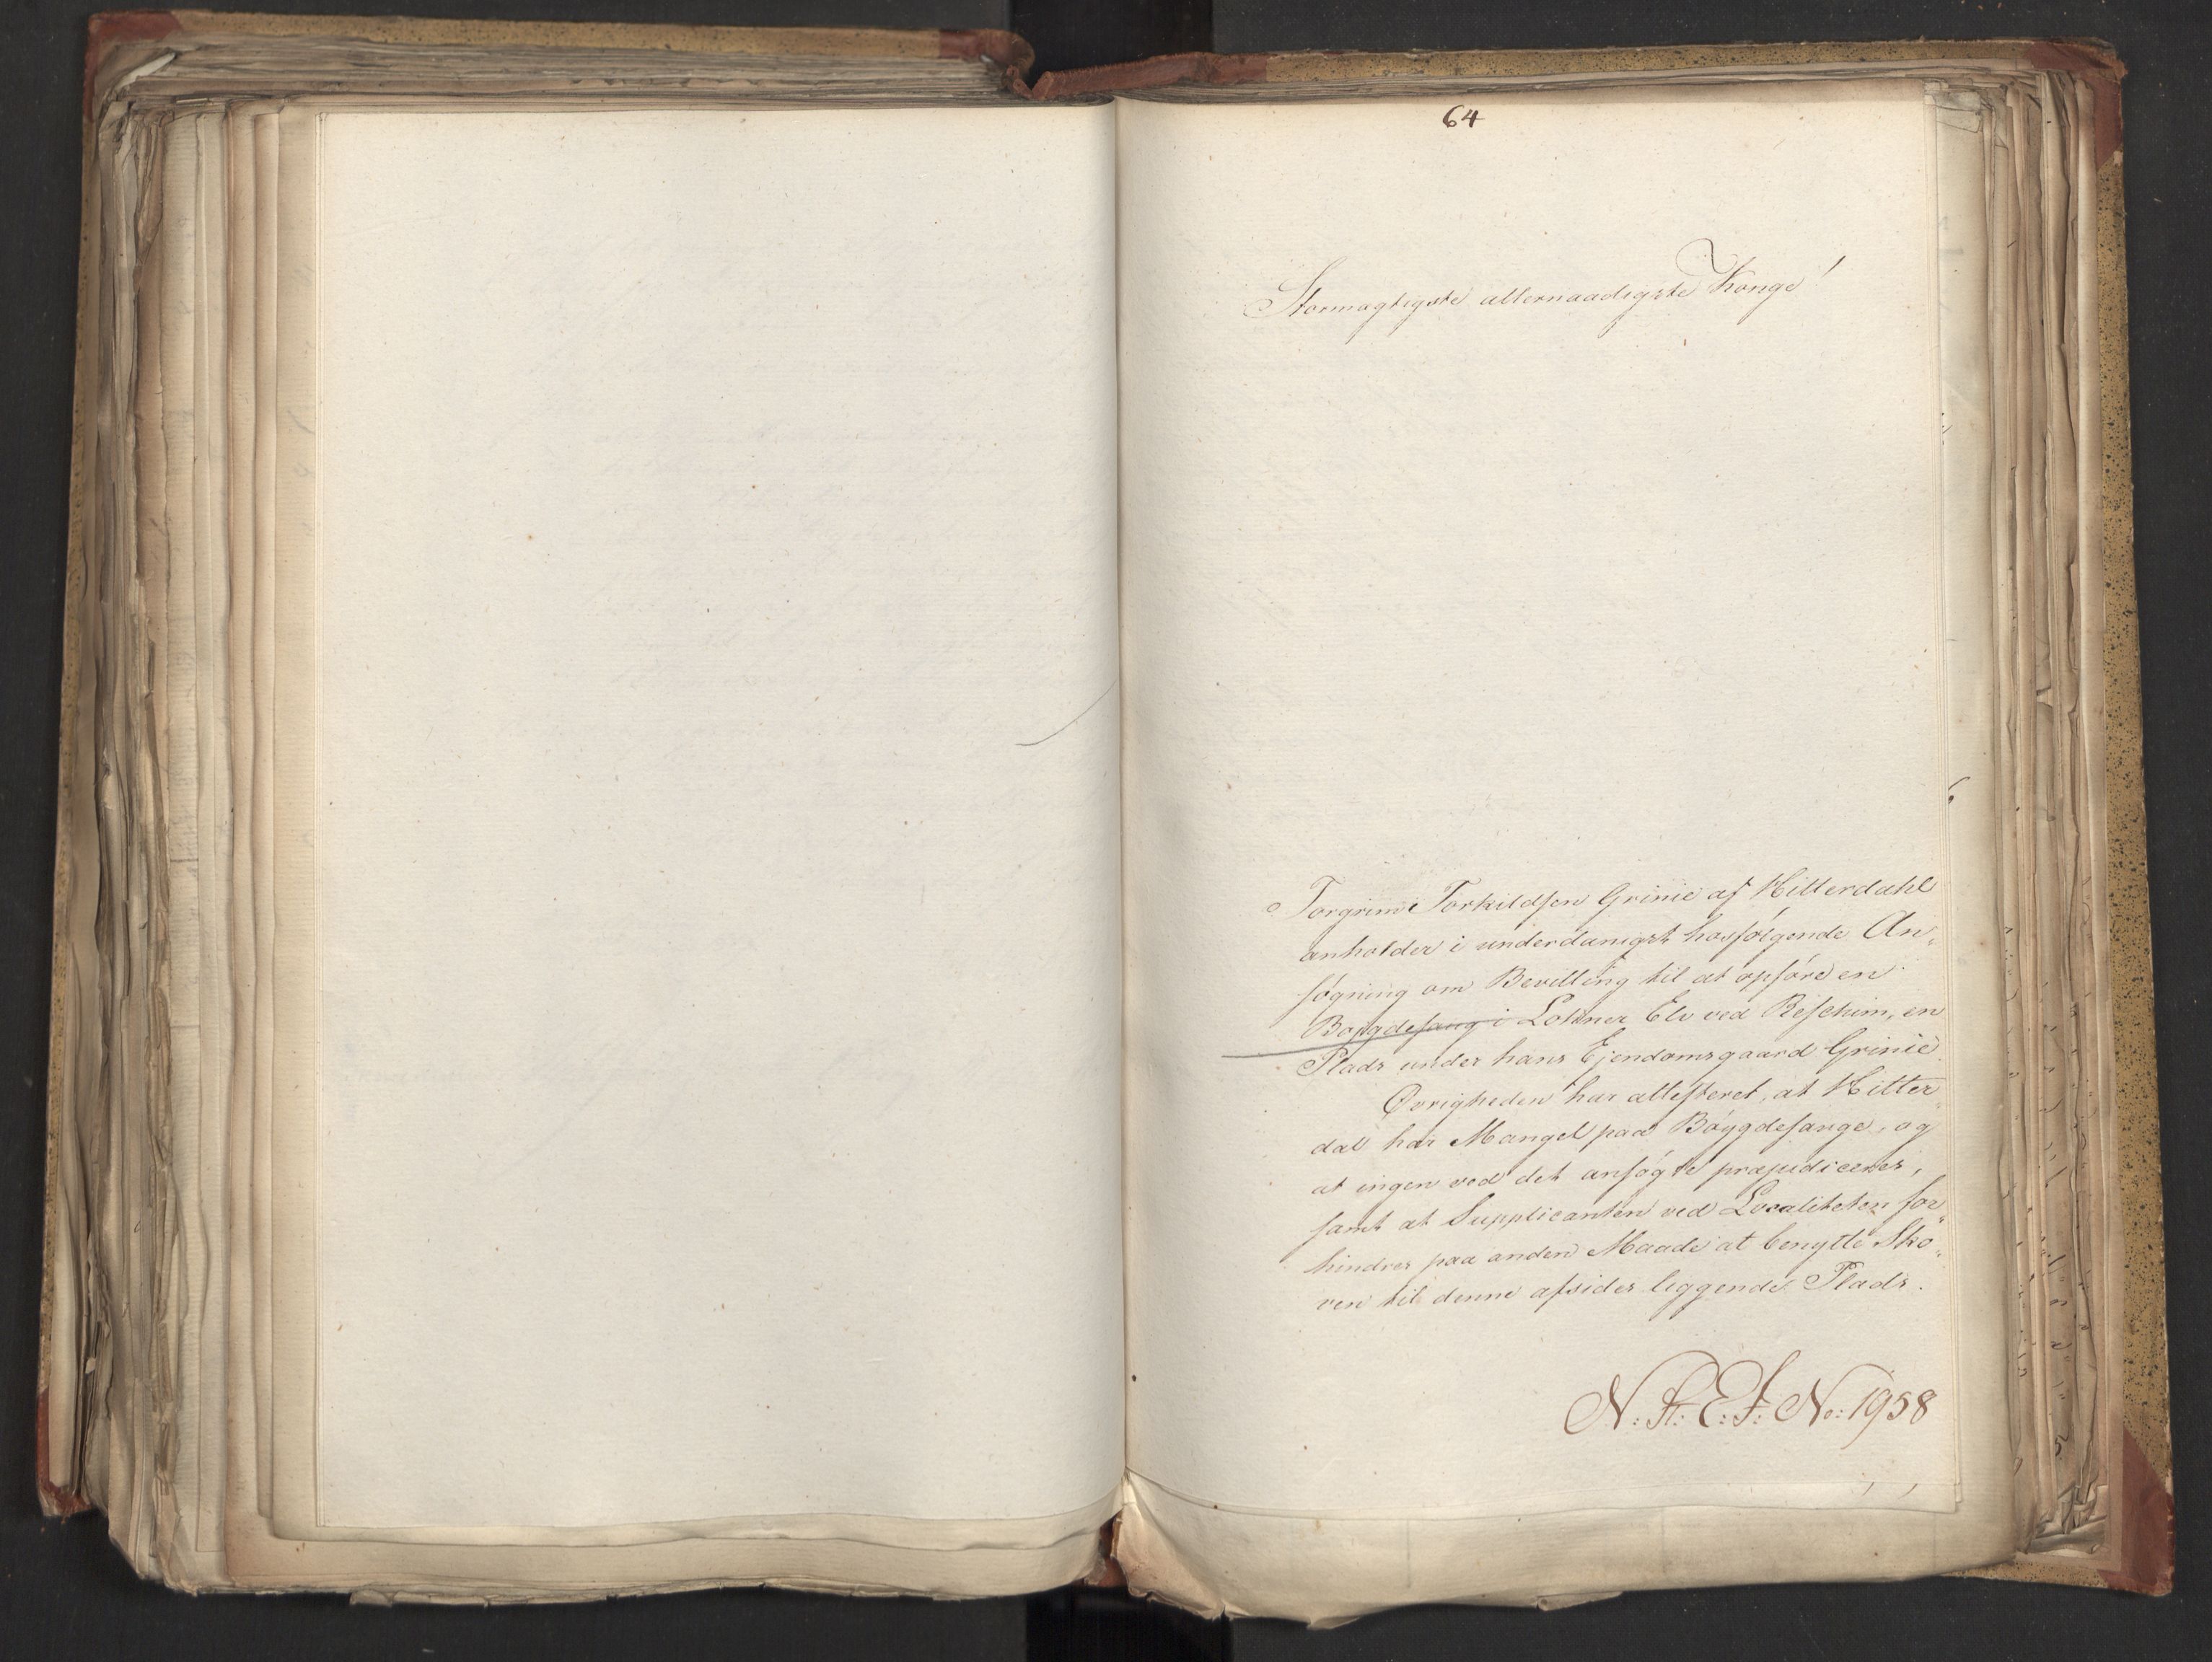 64
Stormægtigste allernaadigste Konge!
Torgrim Torkildsen Grinie af Hitterdahl
anholder i underdanigst hosfølgende An„
søgning om Bevilling til at opføre en
Bøygdesaug i Elv ved en
Plads under hans Ejendomsgaard Grinie
Øvrigheden har attesteret, at Hitter„
dal har Mangel paa Bøygdesauge, og
at ingen ved det ansøgte præjudiceres,
samt at Supplicanten ved Localiteten for„
hindres paa anden Maade at benytte Sko„
ven til denne afsides liggende Plads.
N: St: E: J: No: 1958